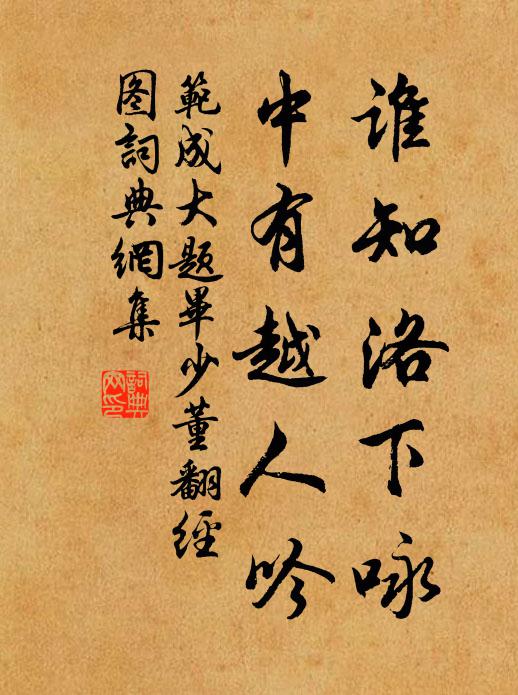 谁知洛下咏
中有越人吟
範成大题畢少董翻經
图詞典網集
詞典
网印